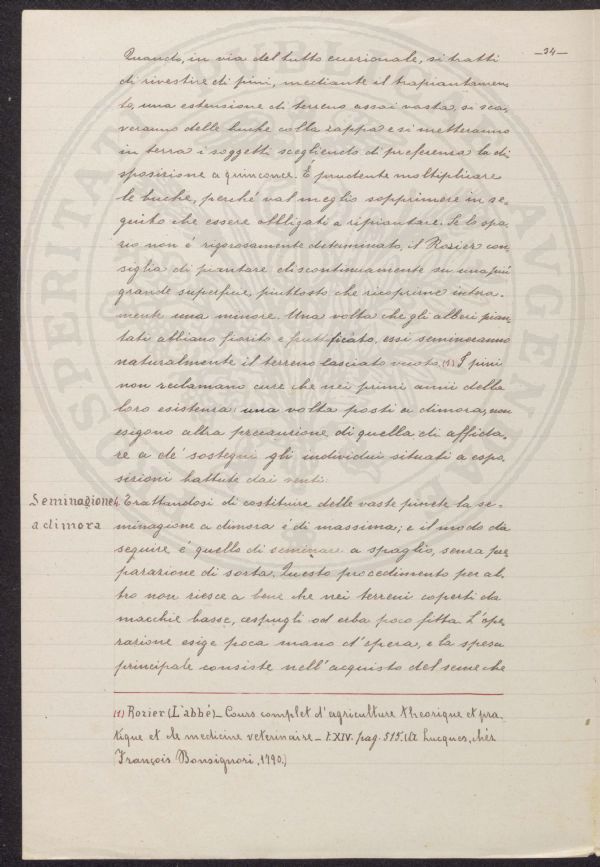 —34—
Quando, in via del tutto eccezionale, si tratti
di rivestire di pini, mediante il trapiantamen-
to, una estensione di terreno assai vasta, si sca-
veranno delle buche colla zappa e si metteranno
in terra i soggetti scegliendo di preferenza la di-
sposizione a quinconce. È prudente moltiplicare
le buche, perché val meglio sopprimere in se-
guito che essere obbligati a ripiantare. Se lo spa-
zio non è rigorosamente determinato, il Rozier con-
siglia di piantare discontinuamente su una più
grande superficie, piuttosto che ricoprirne intera-
mente una minore. Una volta che gli alberi pian-
tati abbiano fiorito e fruttificato, essi semineranno
naturalmente il terreno lasciato vuoto.(1) I pini
non reclamano cure che nei primi anni della
loro esistenza: una volta posti a dimora, non
esigono altra precauzione di quella di affida-
re a de' sostegni gli individui situati a espo-
sizioni battute dai venti.
Seminagione
a dimora
4. Trattandosi di costituire delle vaste pinete la se-
minagione a dimora è di massima; e il modo da
seguire è quello di seminare a spaglio, senza pre-
parazione di sorta. Questo procedimento per al-
tro non riesce a bene che nei terreni coperti da
macchie basse, cespugli od erba poco fitta. L'ope-
razione esige poca mano d'opera, e la spesa
principale consiste nell'acquisto del seme che
(1) Rozier (L'abbé) – Cours complet d'agriculture theorique et pra-
tique et de medicine veterinaire – t. XIV. pag. 515. (A Lucques, chéz
François Bonsignori, 1790.)